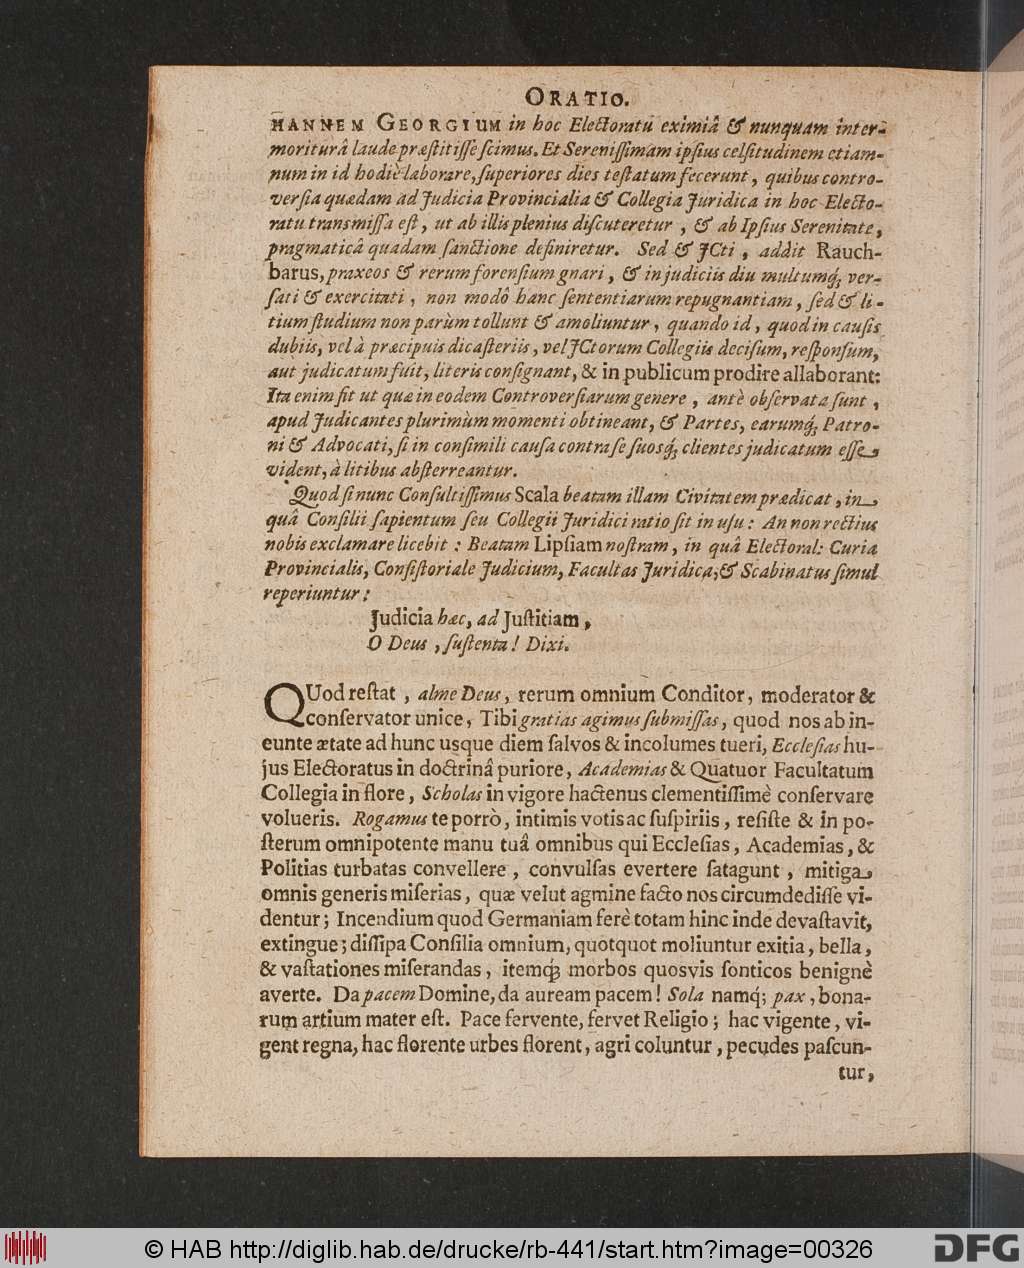 ORATIO.
HANNEM GEORGIUM in hoc Electoratu eximiâ & nunquam inter-
moriturâ laude præſtitiſſe ſcimus. Et Sereniſſimam ipſius celſitudinem etiam-
num in id hodiè laborare, ſuperiores dies teſtatum fecerunt, quibus contro-
verſia quædam ad Judicia Provincialia & Collegia Juridica in hoc Electo-
ratu transmiſſa eſt, ut ab illis plenius diſcuteretur, & ab Ipſius Serenitate,
pragmaticâ quadam ſanctione definiretur. Sed & JCti, addit Rauch-
barus, praxeos & rerum forenſium gnari, & in judiciis diu multumq́; ver-
ſati & exercitati, non modô hanc ſententiarum repugnantiam, ſed & li-
tium ſtudium non parùm tollunt & amoliuntur, quando id, quod in cauſis
dubiis, vel à præcipuis dicaſteriis, vel JCtorum Collegiis deciſum, reſponſum,
aut judicatum fuit, literis conſignant, & in publicum prodire allaborant:
Ita enim fit ut quæ in eodem Controverſiarum genere, antè obſervata ſunt,
apud Judicantes plurimùm momenti obtineant, & Partes, earumq́; Patro-
ni & Advocati, ſi in conſimili cauſa contra ſe ſuosq́; clientes judicatum eſſe
vident, à litibus abſterreantur.
Quod ſi nunc Conſultiſſimus Scala beatam illam Civitatem prædicat, in
quâ Conſilii ſapientum ſeu Collegii Juridici ratio ſit in uſu: An non rectius
nobis exclamare licebit: Beatam Lipſiam noſtram, in quâ Electoral: Curia
Provincialis, Conſiſtoriale Judicium, Facultas Juridica, & Scabinatus ſimul
reperiuntur:
Judicia hæc, ad Juſtitiam,
O Deus, ſuſtenta! Dixi.
QUod reſtat, alme Deus, rerum omnium Conditor, moderator &
conſervator unice, Tibi gratias agimus ſubmiſſas, quod nos ab in-
eunte ætate ad hunc usque diem ſalvos & incolumes tueri, Eccleſias hu-
jus Electoratus in doctrinâ puriore, Academias & Quatuor Facultatum
Collegia in flore, Scholas in vigore hactenus clementiſſimè conſervare
volueris. Rogamus te porrò, intimis votis ac ſuſpiriis, reſiſte & in po-
ſterum omnipotente manu tuâ omnibus qui Eccleſias, Academias, &
Politias turbatas convellere, convulſas evertere ſatagunt, mitiga
omnis generis miſerias, quæ velut agmine facto nos circumdediſſe vi-
dentur; Incendium quod Germaniam ferè totam hinc inde devaſtavit,
extingue; diſſipa Conſilia omnium, quotquot moliuntur exitia, bella,
& vaſtationes miſerandas, itemq́; morbos quosvis ſonticos benignè
averte. Da pacem Domine, da auream pacem! Sola namq́; pax, bona-
rum artium mater eſt. Pace fervente, fervet Religio; hac vigente, vi-
gent regna, hac florente urbes florent, agri coluntur, pecudes paſcun-
tur,
© HAB http://diglib.hab.de/drucke/rb-441/start.htm?image=00326
DFG